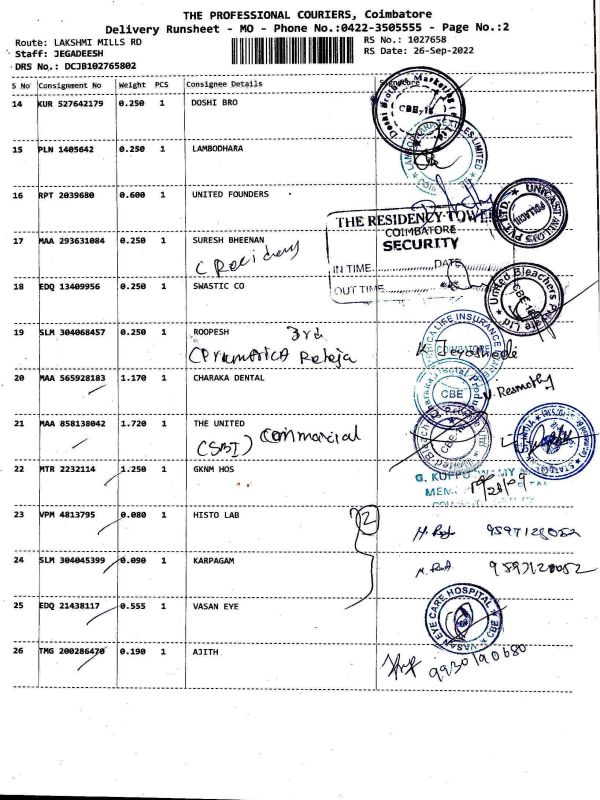 THE PROFESSIONAL COURIERS, Coimbatore
Delivery Runsheet - MO - Phone No.:0422-3505555 - Page No.:2
Route: LAKSHMI MILLS RD
RS No.: 1027658
Staff: JEGADEESH
RS Date: 26-Sep-2022
DRS No.: DCJB102765802
S No Consignment No Weight PCS Consignee Details Signature
14 KUR 527642179 0.250 1 DOSHI BRO
CBE-18
15 PLN 1405642 0.250 1 LAMBODHARA
16 RPT 2039680 0.600 1 UNITED FOUNDERS
THE RESIDENCY TOWER
COIMBATORE
SECURITY
IN TIME DATE
OUT TIME
17 MAA 293631084 0.250 1 SURESH BHEENAN
18 EDQ 13409956 0.250 1 SWASTIC CO
United Bleachers Private Ltd
19 SLM 304068457 0.250 1 ROOPESH
3rd
LIFE INSURANCE
COIMBATORE
20 MAA 565928183 1.170 1 CHARAKA DENTAL
CBE
21 MAA 858138042 1.720 1 THE UNITED
(SBI) Commercial
22 MTR 2232114 1.250 1 GKNM HOS
23 VPM 4813795 0.080 1 HISTO LAB
2
9597128052
24 SLM 304045399 0.090 1 KARPAGAM
9597120052
25 EDQ 21438117 0.555 1 VASAN EYE
VASAN EYE CARE HOSPITAL
CBE
26 TMG 200286470 0.190 1 AJITH
9930190680